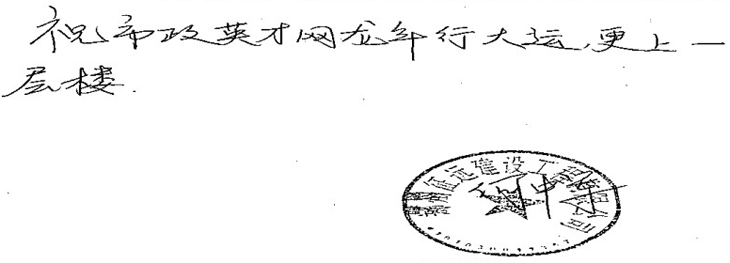 祝市政英才网龙年行大运,更上一
层楼.
远建设工程有限公司